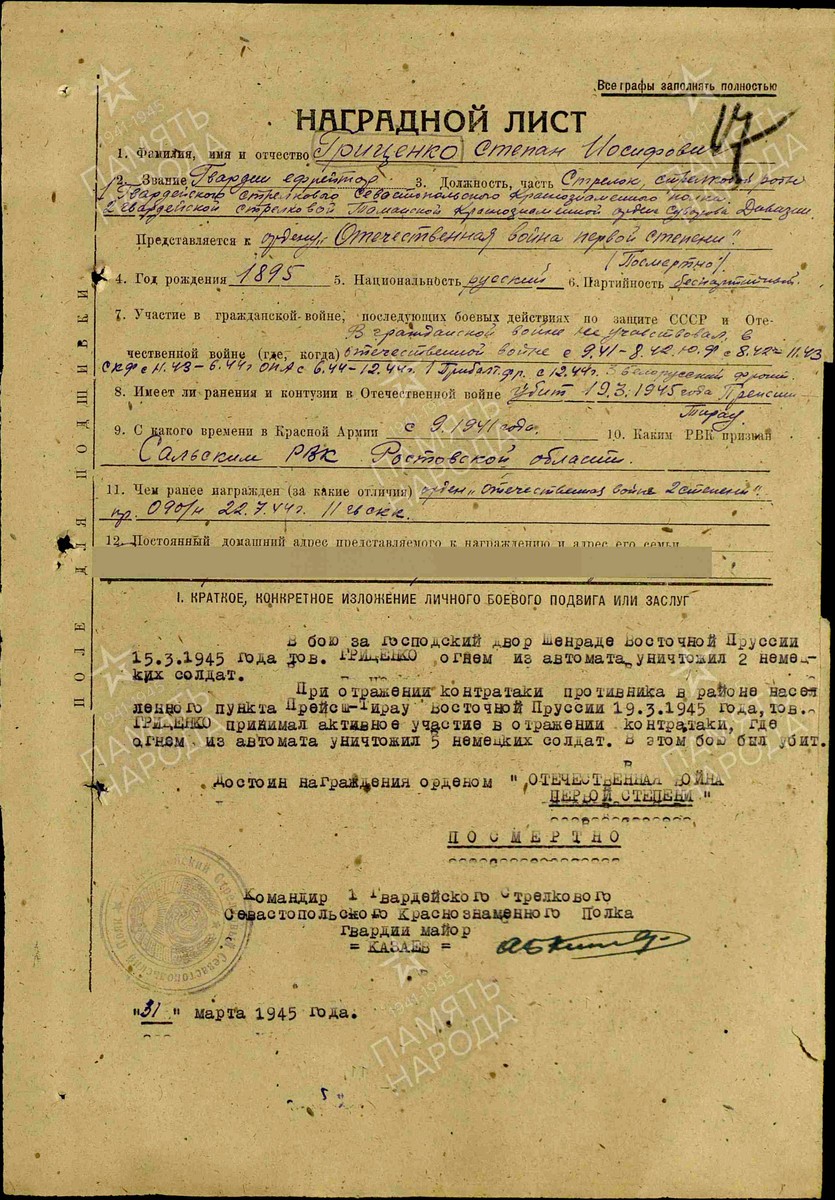 Все графы заполнять полностью
17
НАГРАДНОЙ ЛИСТ
1. Фамилия, имя и отчество Гриценко Степан Иосифович
2. Звание Гвардии ефрейтор 3. Должность, часть Стрелок, стрелковой роты
1 Гвардейского стрелкового Севастопольского Краснознаменного полка
2 Гвардейской стрелковой Таманской Краснознаменной ордена Суворова Дивизии.
Представляется к ордену „Отечественная война первой степени".
(Посмертно).
4. Год рождения 1895 5. Национальность русский 6. Партийность беспартийный.
7. Участие в гражданской войне, последующих боевых действиях по защите СССР и Оте-
В гражданской войне не участвовал, в
чественной войне (где, когда) отечественной войне с 9.41-8.42 Ю.Ф с 8.42-11.43
СКФ с 11.43-6.44г ОПА с 6.44-12.44г. 1 Прибалт.фр. с 12.44г. 3 Белорусский фронт.
8. Имеет ли ранения и контузии в Отечественной войне убит 19.3.1945 года
Тирау
9. С какого времени в Красной Армии с 9.1941 года. 10. Каким РВК призван
Сальским РВК Ростовской области.
11. Чем ранее награжден (за какие отличия) орден „Отечественная война 2 степени".
пр. 090/н 22.7.44г. 11 гв скк.
12. Постоянный домашний адрес представляемого к награждению и адрес его семьи
ПОЛЕ ДЛЯ ПОДШИВКИ
I. КРАТКОЕ, КОНКРЕТНОЕ ИЗЛОЖЕНИЕ ЛИЧНОГО БОЕВОГО ПОДВИГА ИЛИ ЗАСЛУГ
В бою за Господский двор Шенраде Восточной Пруссии
15.3.1945 года тов. ГРИЦЕНКО огнем из автомата уничтожил 2 немец-
ких солдат.
При отражении контратаки противника в районе насе-
ленного пункта Прейсш-Тирау Восточной Пруссии 19.3.1945 года, тов.
ГРИЦЕНКО принимал активное участие в отражении контратаки, где
огнем из автомата уничтожил 5 немецких солдат. В этом бою был убит.
Достоин награждения орденом " ОТЕЧЕСТВЕННАЯ ВОЙНА
ПЕРВОЙ СТЕПЕНИ "
ПОСМЕРТНО
Командир 1 Гвардейского Стрелкового
Севастопольского Краснознаменного Полка
Гвардии майор
= КАЗАЕВ =
"31" марта 1945 года.
1941-1945
ПАМЯТЬ
НАРОДА